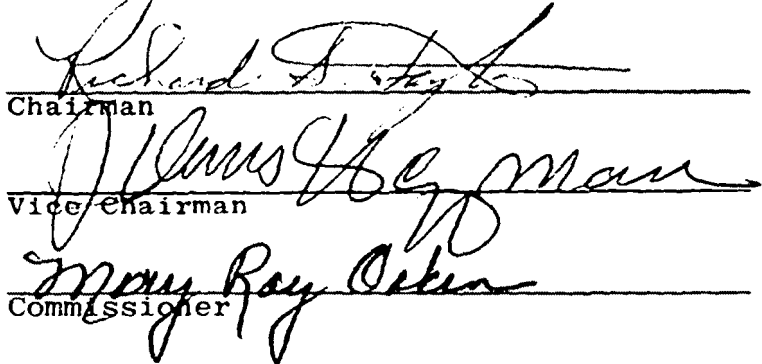 Richard S. Taylor
Chairman
Dennis
Vice Chairman
Mary Ray Oaken
Commissioner